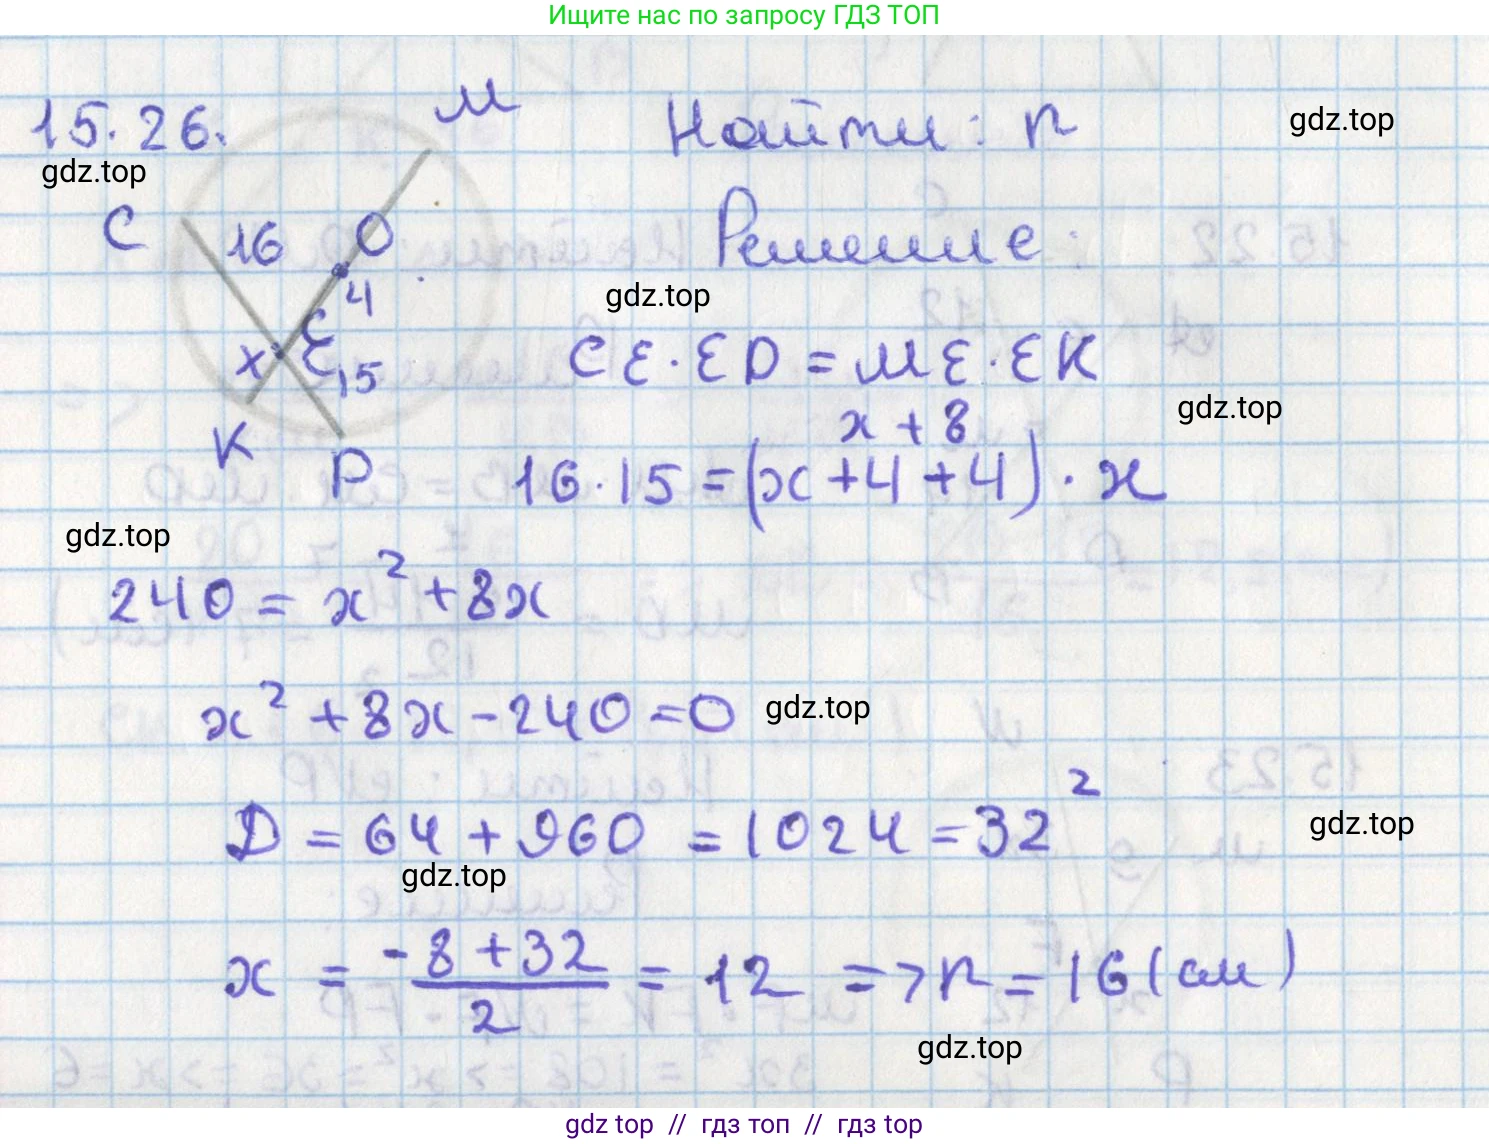 Ищите нас по запросу ГДЗ ТОП
15.26.
М
Найти: r
gdz.top
gdz.top
С
16
О
Решение:
4
gdz.top
Е
x
Е
15
CE·ED = ME·EK
gdz.top
К
P
x + 8
16·15 = (x+4+4)·x
gdz.top
240 = x² + 8x
x² + 8x - 240 = 0
gdz.top
Д = 64 + 960 = 1024 = 32²
gdz.top
gdz.top
x = (-8+32)/2 = 12 => r = 16 (см)
gdz.top
gdz top // гдз топ // гдз top